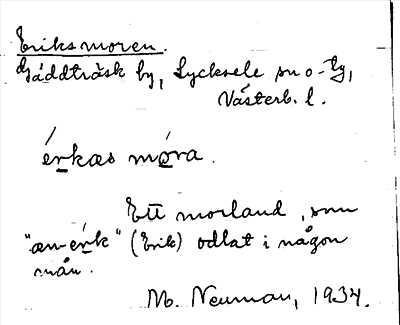 Eriksmoren.
Gäddträsk by, Lycksele sn o-tg,
Västerb. l.
érkas móra.
Ett morland, som
"æn érk" (Erik) odlat i någon
mån.
M. Neuman, 1934.